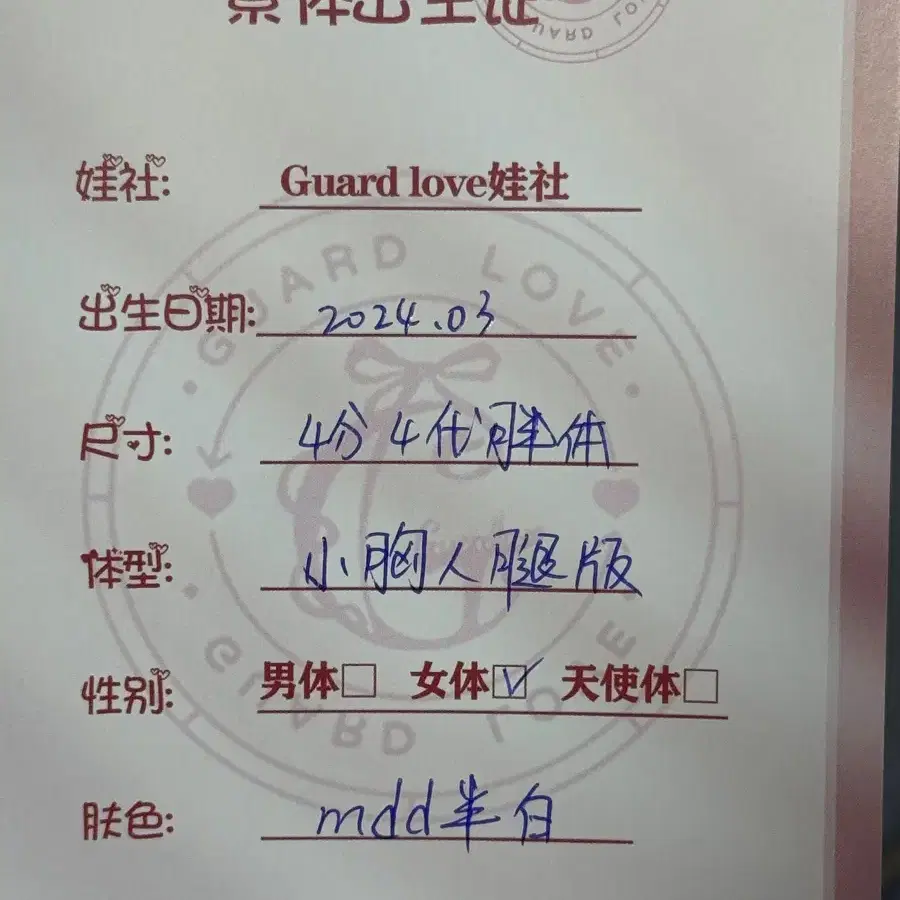 素体出生证
娃社: Guard love娃社
出生日期: 2024.03
尺寸: 4分4代胖体
体型: 小胸人腿版
性别: 男体□ 女体☑ 天使体□
肤色: mdd半白
GUARD LOVE
GUARD LOVE